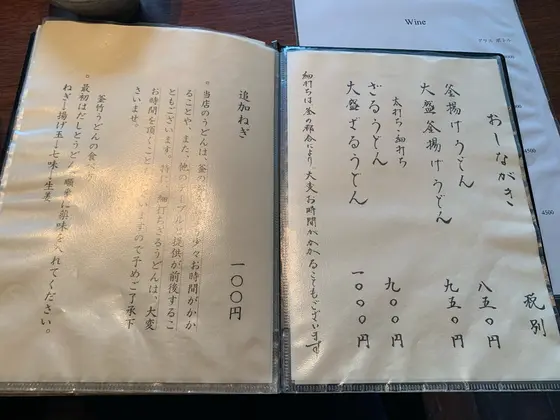 Wine
グラス ボトル
4500
4500
おしながき
税別
釜揚げうどん 八五〇円
大盛釜揚げうどん 九五〇円
太打ち・細打ち
ざるうどん 九〇〇円
大盛ざるうどん 一〇〇〇円
細打ちは釜の都合により、大変お時間がかかることもございます
追加ねぎ 一〇〇円
。当店のうどんは、釜の
少々お時間がかか
ることや、また、他のテーブルと提供が前後するこ
ともございます。特に、細打ちざるうどんは、大変
お時間を頂くことも
いますので予めご了承下
さいませ。
釜竹うどんの食べ
。最初はだしとうどん
順番に薬味を入れてください。
ねぎ→揚げ玉→七味→生姜